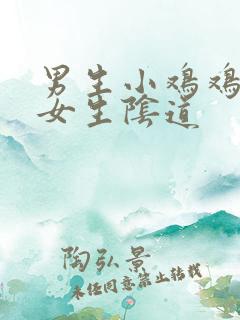 男生小鸡鸡
女生陰道
陶弘景
未任同意禁止转载